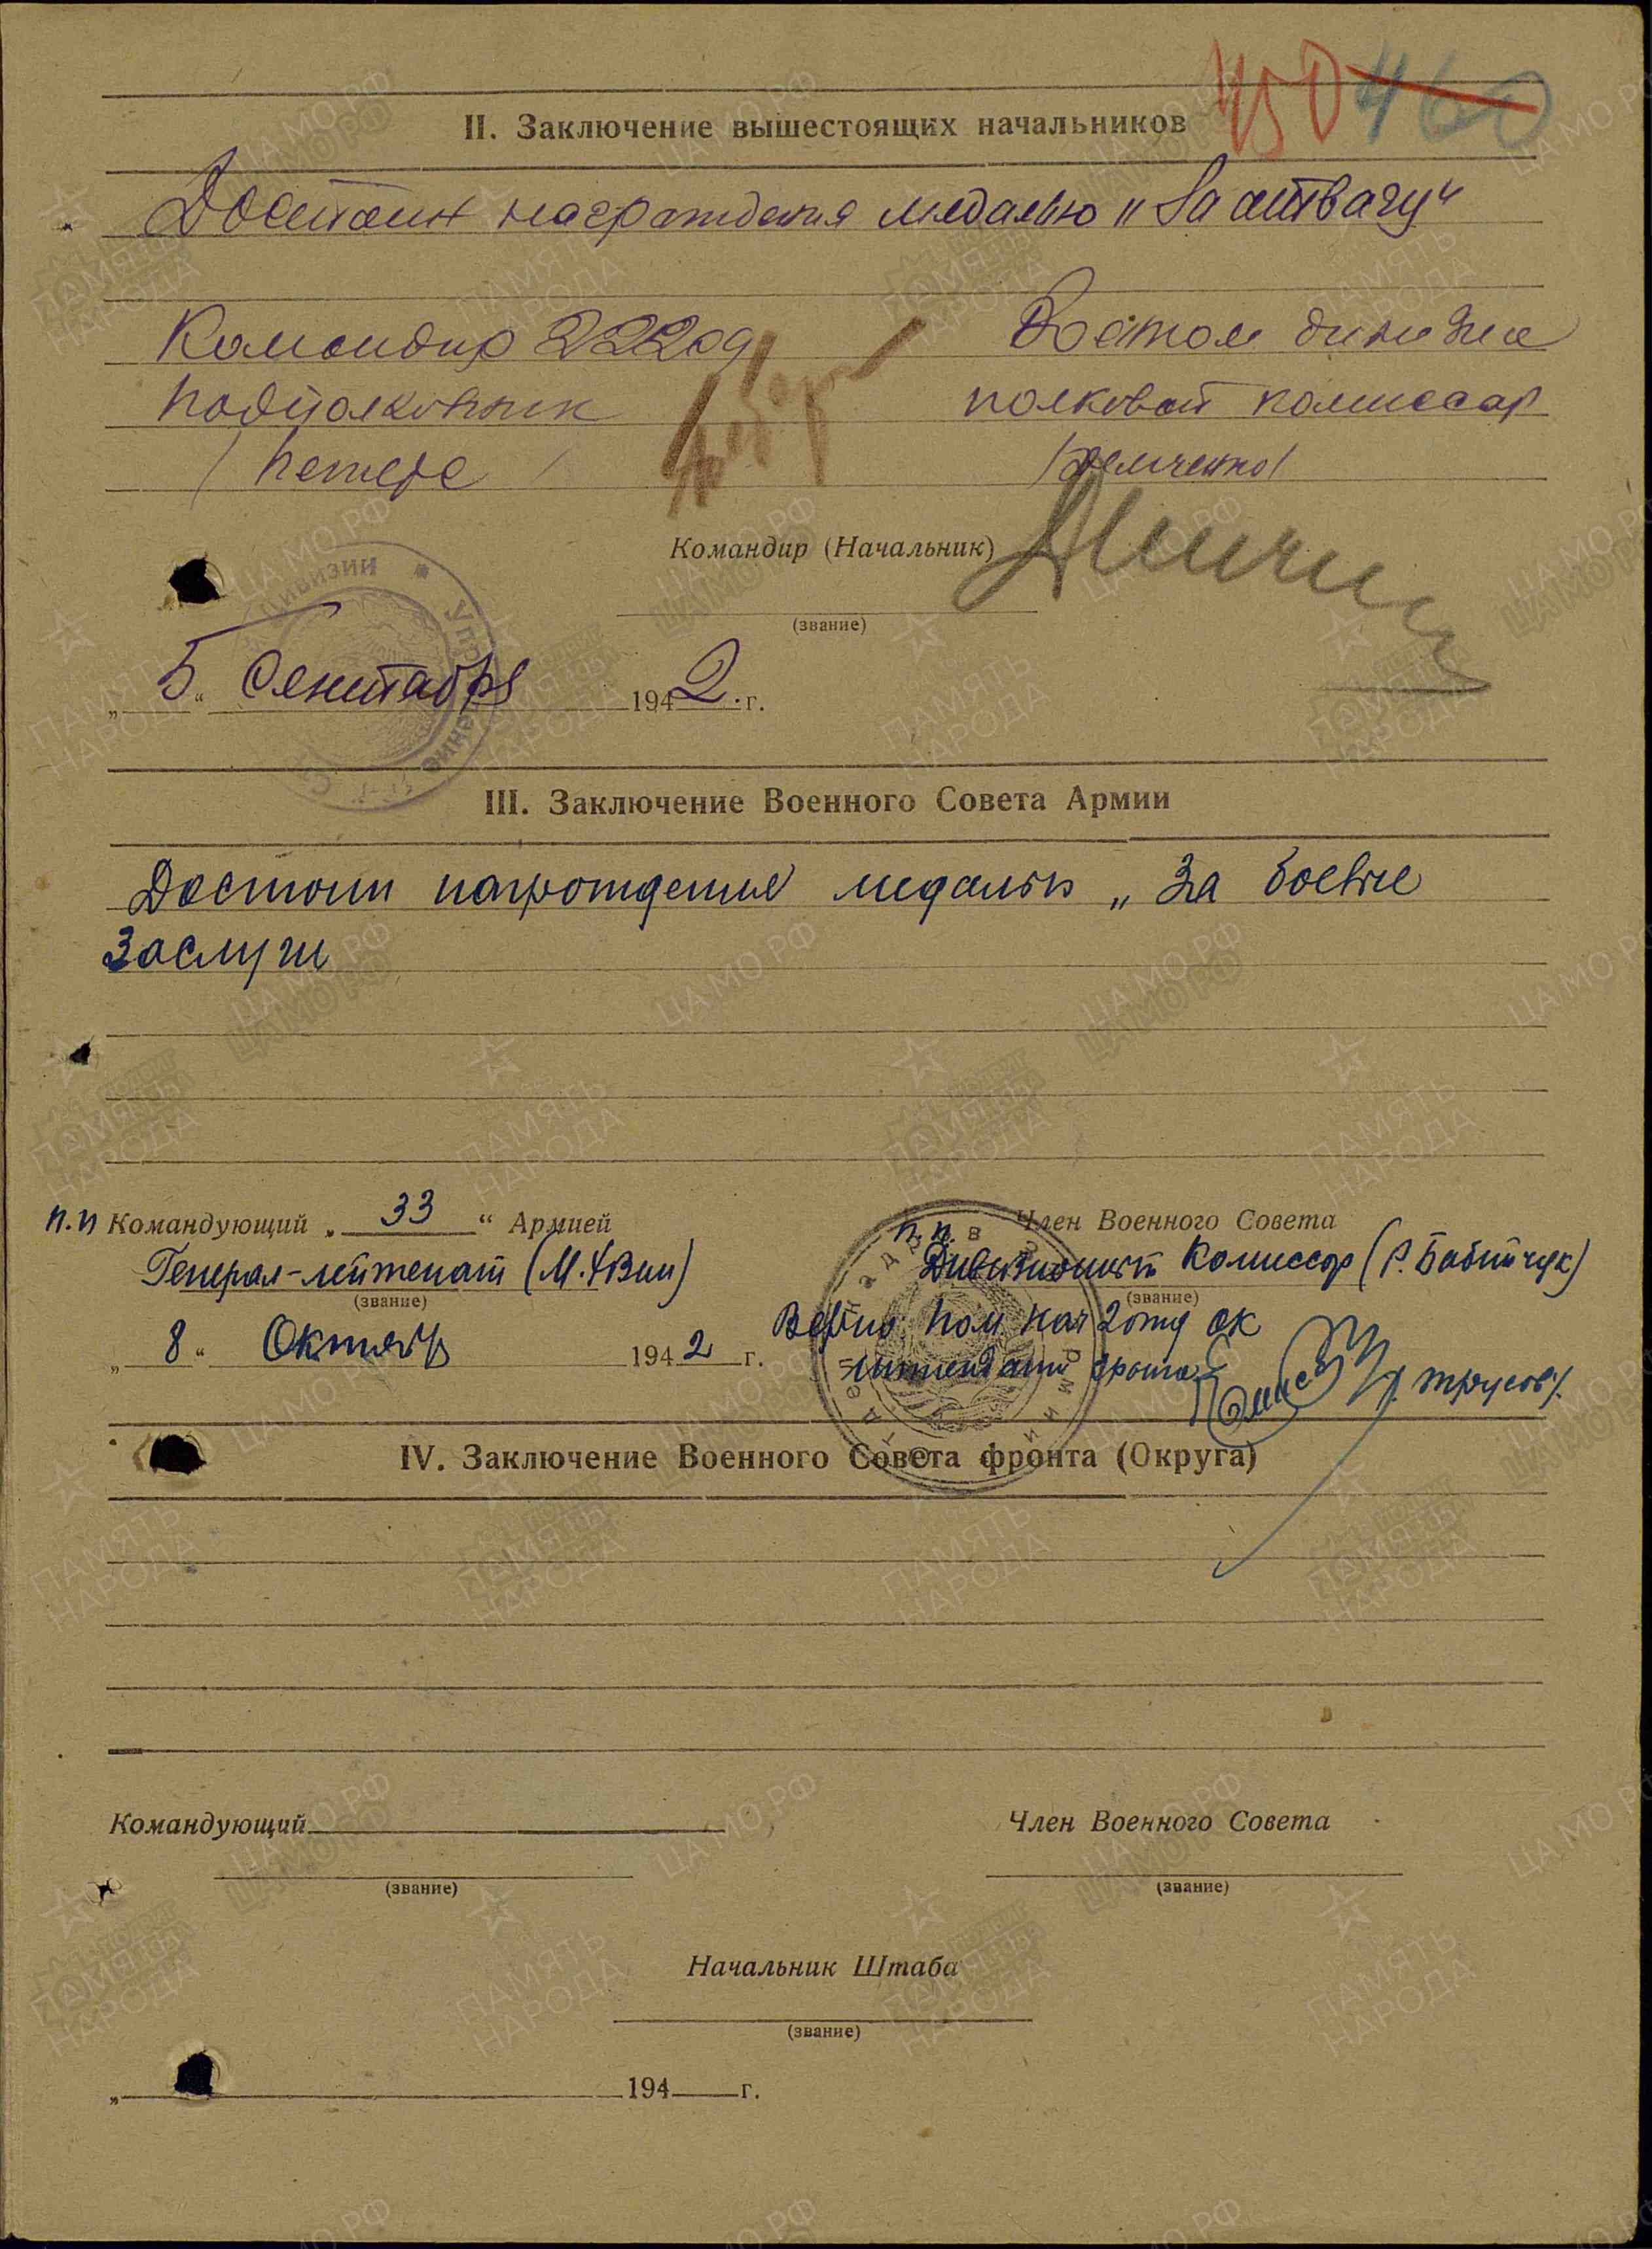 450 460
II. Заключение вышестоящих начальников
Достоин награждения медалью „За отвагу“
Командир 222 сд
подполковник
/ Петерс /
Военком дивизии
полковой комиссар
/Демченко/
Командир (Начальник)
(звание)
дивизии * Управление
„5“ Сентября 1942.г.
III. Заключение Военного Совета Армии
Достоин награждения медалью „За боевые
заслуги
п.п Командующий „33“ Армией
Генерал-лейтенант (М. Хозин)
(звание)
„8“ Октября 1942 г.
п.п. Член Военного Совета
Дивизионный Комиссар (Р. Бабийчук)
(звание)
Верно: Пом нач 2 отд ОК
фронта
IV. Заключение Военного Совета фронта (Округа)
Командующий
(звание)
Член Военного Совета
(звание)
Начальник Штаба
(звание)
„ 194 г.
ЦАМО РФ
ПАМЯТЬ НАРОДА